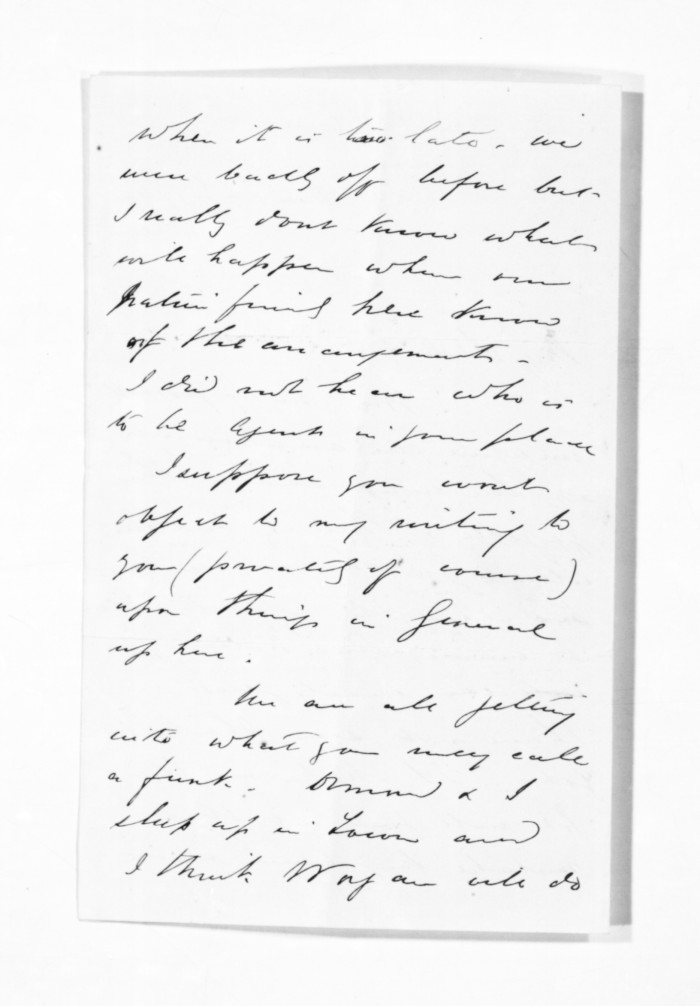 when it is too late. we
were badly off before but
I really dont know what
will happen when our
native friends here know
of the arrangements.
I did not hear who is
to be Agent in your place
I suppose you wont
object to my writing to
you (privately of course)
upon things in General
up here.
We are all getting
into what you may call
a funk. Ormond & I
sleep up in Town and
I think Worgan will do